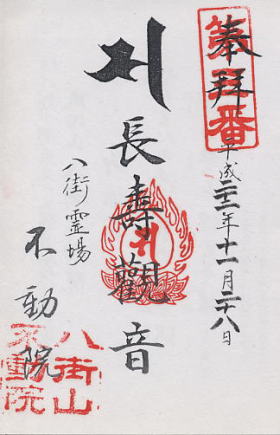 奉拝
平成二十二年十一月二十八日
長壽觀音
八街霊場
不動院
八街山
不動院